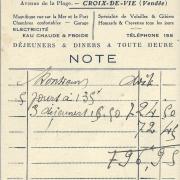 Avenue de la Plage. — CROIX-DE-VIE (Vendée)
Magnifique vue sur la Mer et le Port
Chambres confortables — Garage
ÉLECTRICITÉ
EAU CHAUDE & FROIDE
Spécialité de Volailles & Gibiers
Homards & Crevettes tous les jours
TÉLÉPHONE 155
DÉJEUNERS & DINERS A TOUTE HEURE
NOTE
Monsieur doit
5 jours à 135
3 déjeuners 16.50 724 50
72 45
796,95